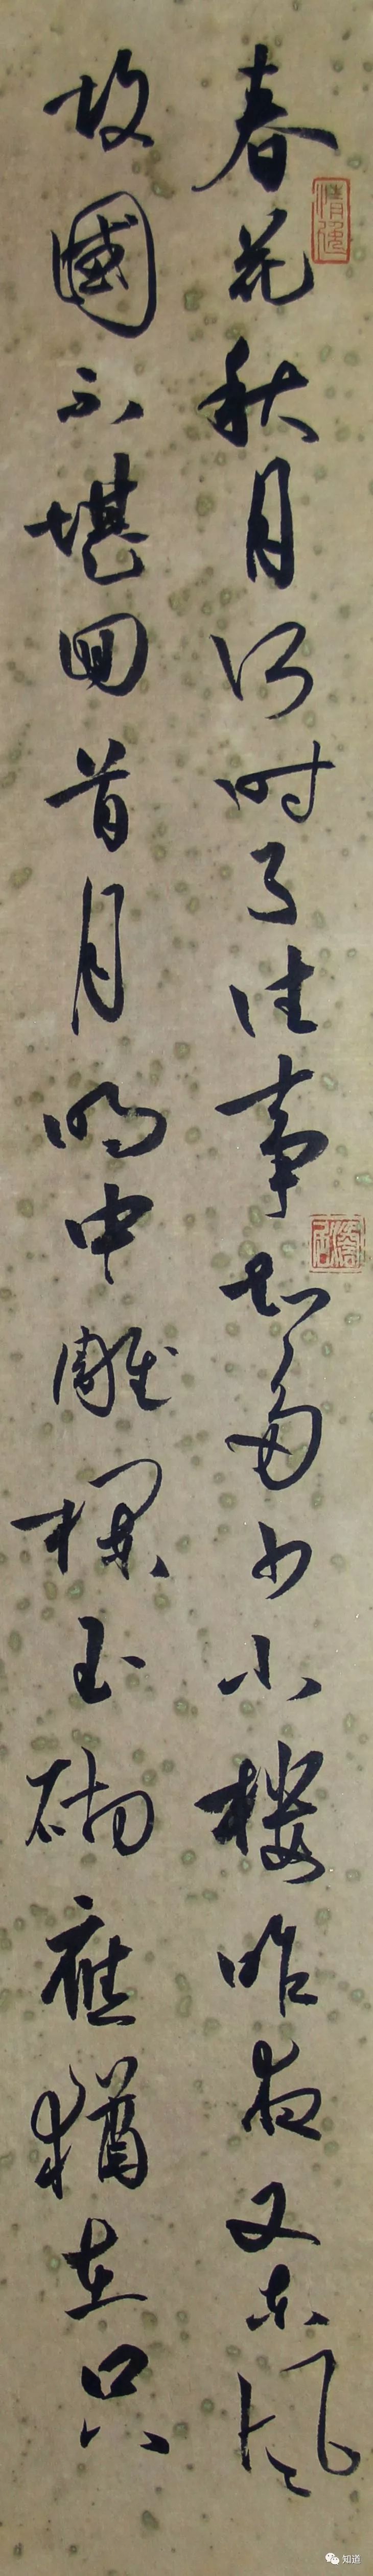 春花秋月何时了往事知多少小楼昨夜又东风
故國不堪回首月明中雕欄玉砌應猶在只
知道